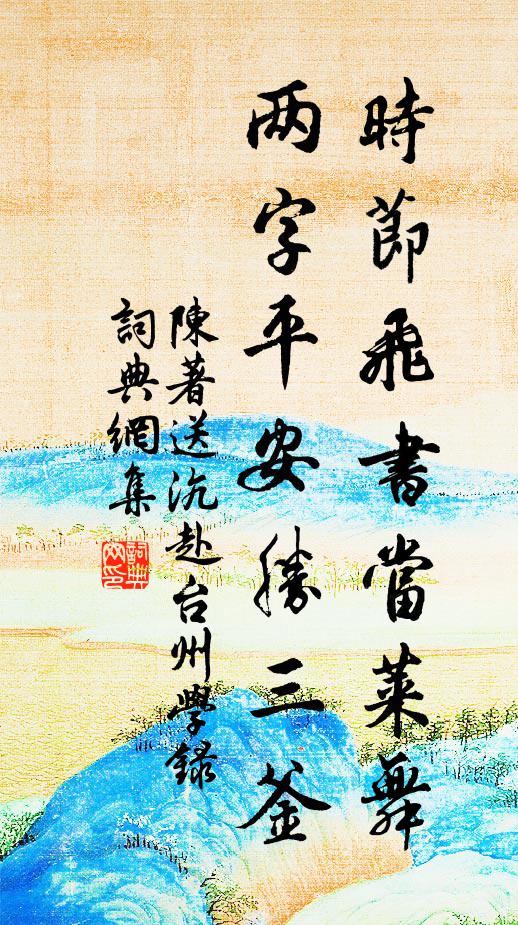 時節飛書當萊舞
两字平安勝三釜
陳著送沆赴台州學錄
詞典網集
詞典
网印